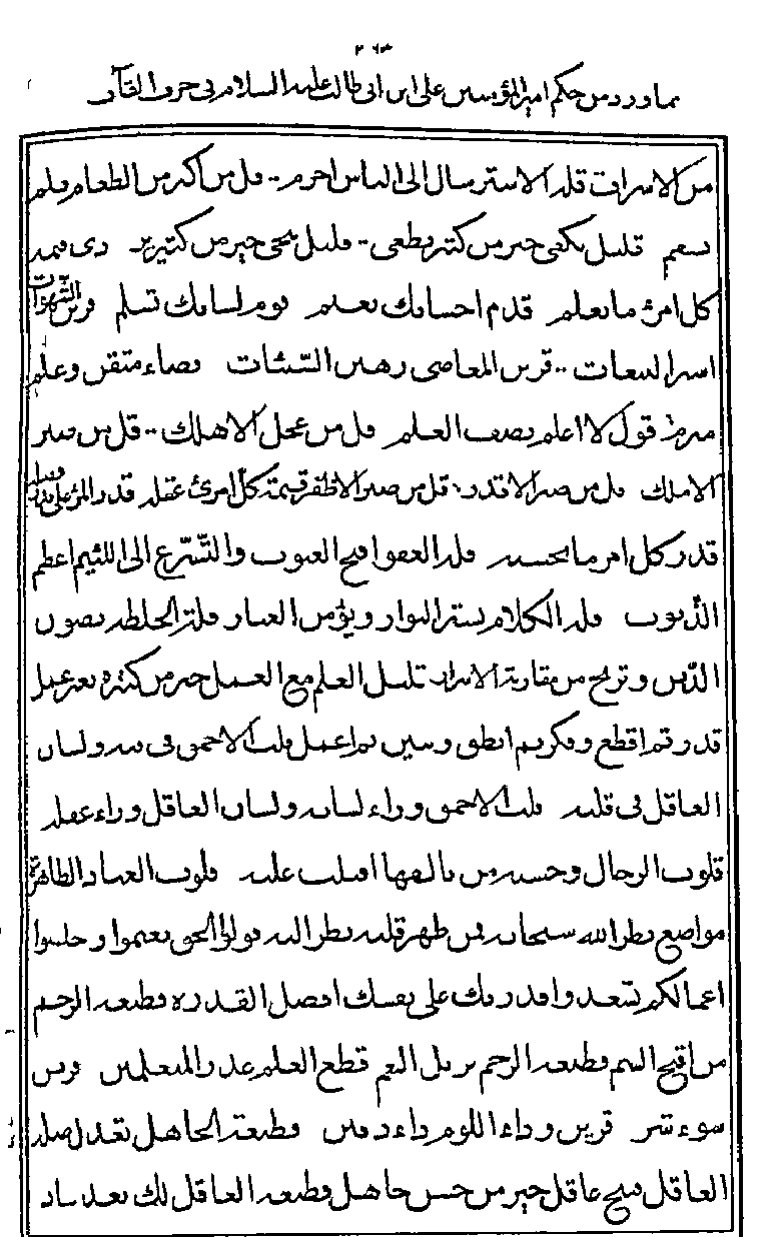 ٢٦٣
مما ورد من حكم امير المؤمنين علي ابن ابي طالب عليه السلام في حرف القاف
من الاسراف قلة الاسترسال الى الناس احزم .. قل من اكثر من الطعام فلم
يسقم قليل يكفي خير من كثير يطغي .. قليل ينجي خير من كثير يردي قيمة
كل امرئ ما يعلم قدم احسانك تغنم قوم لسانك تسلم قرين الشهوات
اسير التبعات .. قرين المعاصي رهين السيئات قضاء متقن وعلم
مبرم قول لا اعلم نصف العلم قل من عجل الا هلك .. قل من صبر
الا ملك قل من صبر الا قدر قل من صبر الا ظفر قيمة كل امرئ عقله قدر المرء على قدر فضله
قدر كل امرء ما يحسنه قلة العفو اقبح العيوب والتسرع الى اللئيم اعظم
الذنوب قلة الكلام يستر العوار ويؤمن العثار قلة الخلطة يصون
الدين وتريح من مقاربة الاشرار قليل العلم مع العمل خير من كثيره بغير عمل
قدر ثم اقطع وفكر ثم انطق وتبين ثم اعمل قلب الاحمق في فيه ولسان
العاقل في قلبه قلب الاحمق وراء لسانه ولسان العاقل وراء عقله
قلوب الرجال وحشية من تألفها اقبلت عليه قلوب العباد الطاهرة
مواضع نظر الله سبحانه فمن طهر قلبه نظر اليه قولوا الحق تغنموا واخلصوا
اعمالكم تسعدوا قدرتك على نفسك افضل القدرة قطيعة الرحم
من اقبح الشيم قطيعة الرحم يزيل النعم قطع العلم عذر المتعلمين قرين
سوء شر قرين وداء اللوم داء دفين قطيعة الجاهل تعدل صلة
العاقل قبيح عاقل خير من حسن جاهل قطيعة العاقل لك بعد